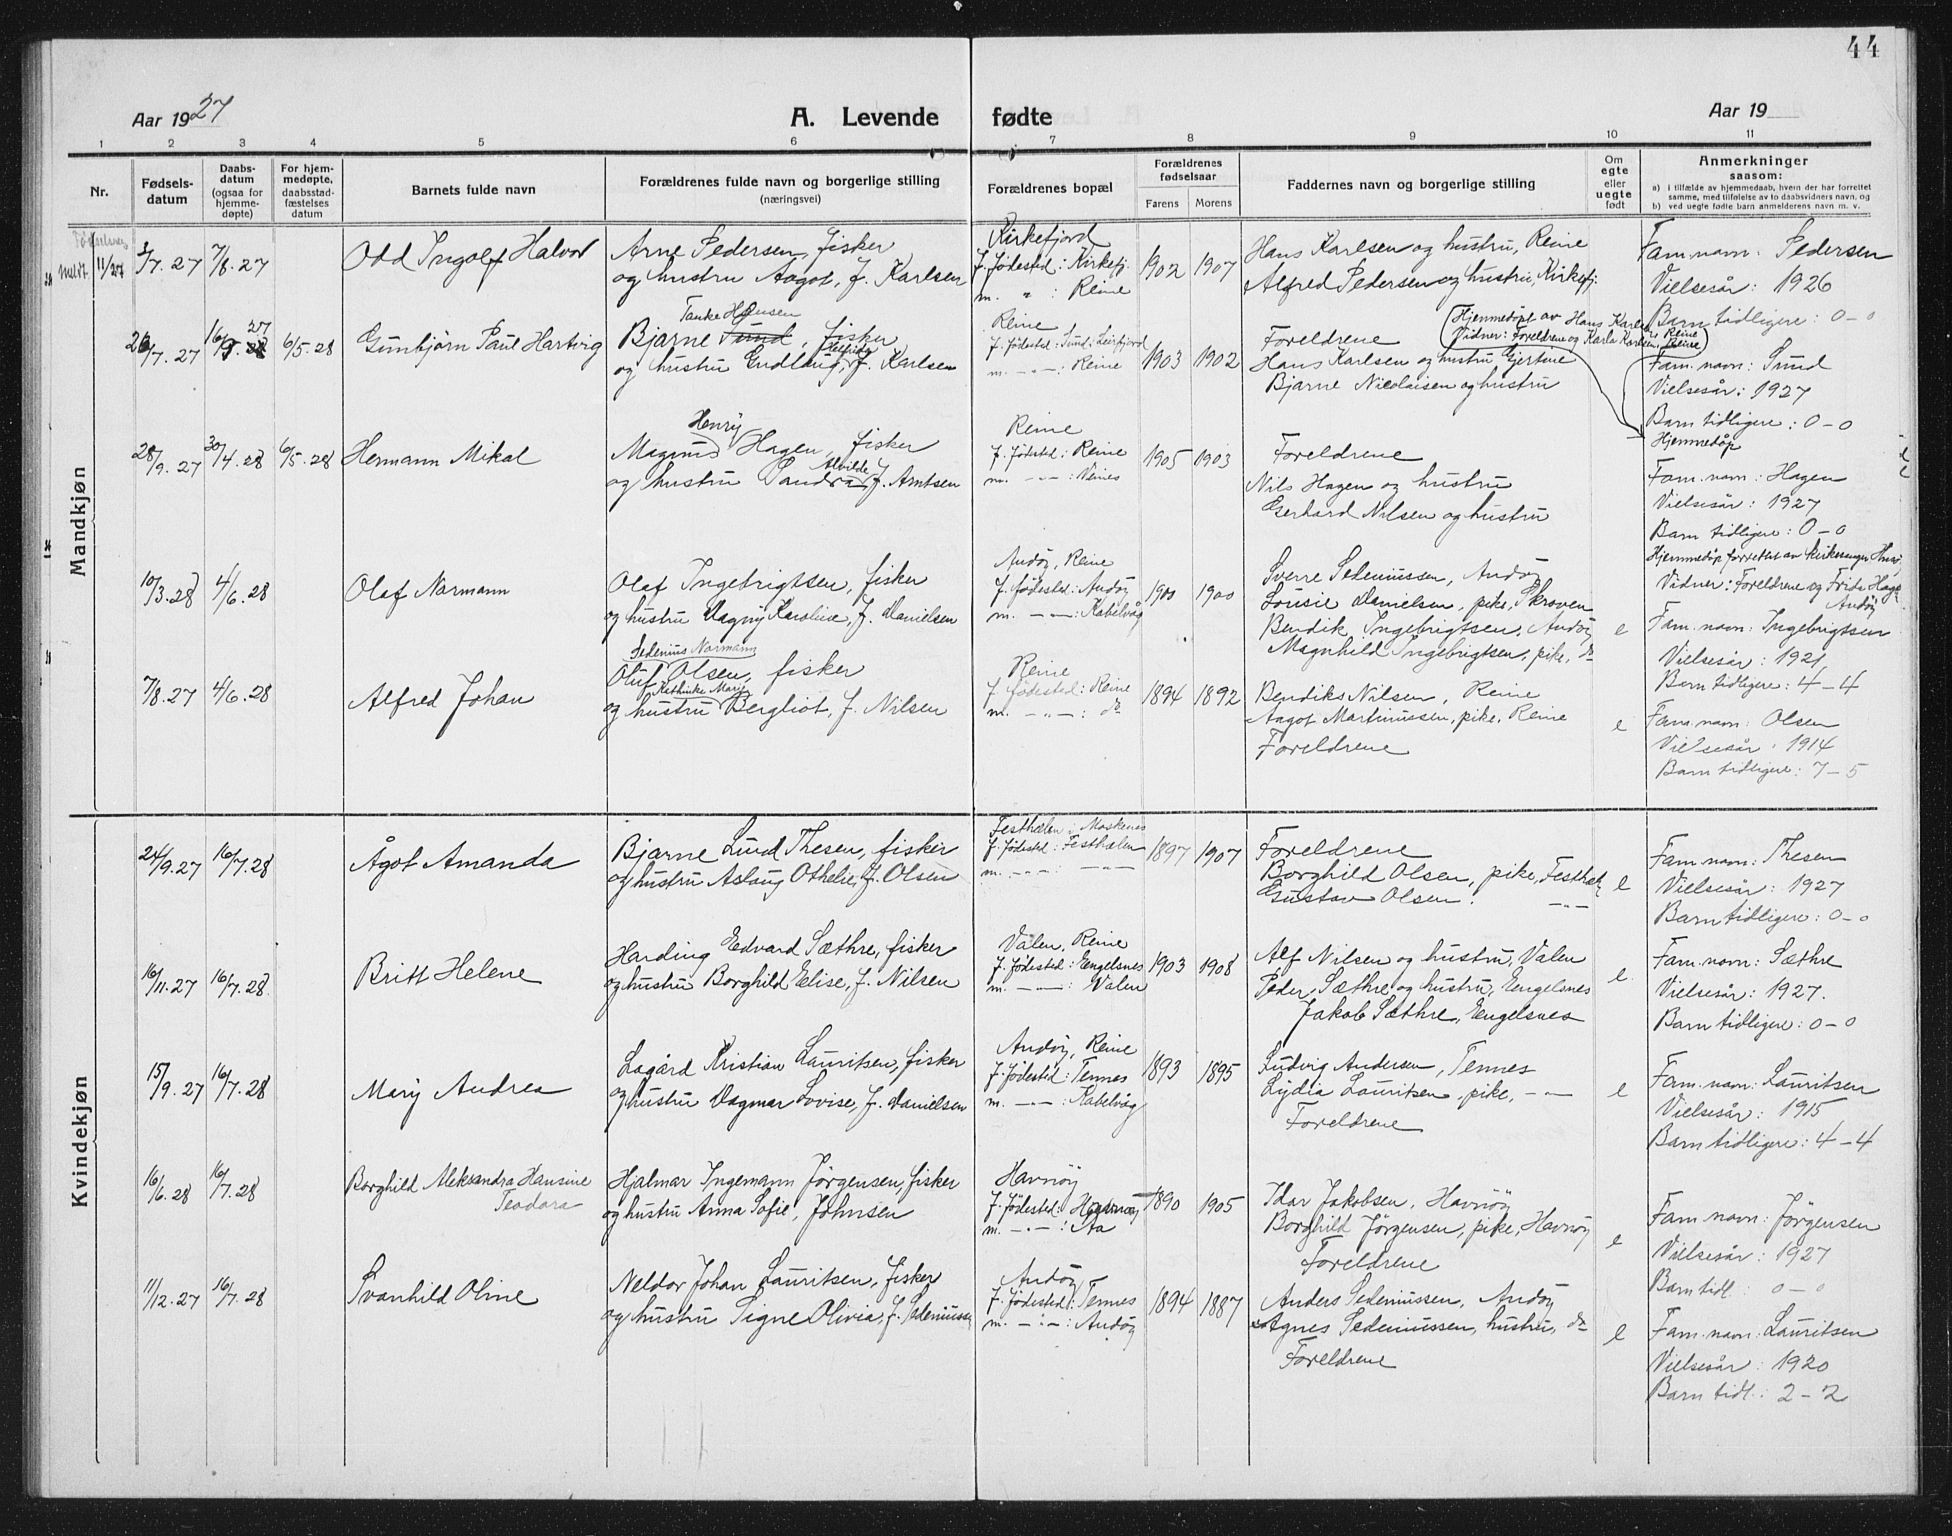 44
Aar 1927
A. Levende fødte
Aar 19
1 2 3 4 5 6 7 8 9 10 11
Nr.
Fødsels-
datum
Daabs-
datum
(ogsaa for
hjemme-
døpte)
For hjem-
medøpte,
daabsstad-
fæstelses
datum
Barnets fulde navn
Forældrenes fulde navn og borgerlige stilling
(næringsvei)
Forældrenes bopæl
Forældrenes
fødselsaar
Farens Morens
Faddernes navn og borgerlige stilling
Om
egte
eller
uegte
født
Anmerkninger
saasom:
a) i tilfælde av hjemmedaab, hvem der har forrettet
samme, med tilføielse av to daabsvidners navn, og
b) ved uegte fødte barn anmelderens navn m. v.
Mandkjøn
meldt 11/27
3/7.27 7/8.27
Odd Ingolf Halvor
Arne Pedersen, fisker
og hustru Aagot, f. Karlsen
Kirkefjord
f. fødested: Kirkefj.
m. " : Reine
1902 1907
Hans Karlsen og hustru, Reine
Alfred Pedersen og hustru, Kirkefj.
Fam.navn: Pedersen
Vielsesår: 1926
Barn tidligere: 0-0
26/7.27 16/9.27 6/5.28
Gunbjörn Paul Hartvig
Tanke Hansen
Bjarne Sund, fisker
og hustru Gudlaug, f. Karlsen
Reine
f. fødested: Sund, Leirfjord
m. -"- : Reine
1903 1902
Foreldrene
Hans Karlsen og hustru Gjertine
Bjarne Nicolaisen og hustru
(Hjemmedöpt av Hans Karlsen, Reine
Vidner: Foreldrene og Karla Karlsen, Reine)
Fam.navn: Sund
Vielsesår: 1927
Barn tidligere: 0-0
Hjemmedöp
28/9.27 30/4.28 6/5.28
Hermann Mikal
Henry
Magnus Hagen, fisker
Alvilde
og hustru Sandra, f. Arntsen
Reine
f. födested: Reine
m. -"- : Veines
1905 1903
Foreldrene
Nils Hagen og hustru
Gerhard Nilsen og hustru
Fam.navn: Hagen
Vielsesår: 1927
Barn tidligere: 0-0
Hjemmedöp forrettet av kirkesanger
Vidner: Foreldrene og
Andöy
10/3.28 4/6.28
Olaf Normann
Olaf Ingebrigtsen, fisker
og hustru Dagny Karoline, f. Danielsen
Andöy, Reine
f. fødested: Andöy
m. -"- : Kabelvåg
1900 1900
Sverre Sedeniussen, Andöy
Lousie Danielsen, pike, Skroven
Bendik Ingebrigtsen, Andöy
Magnhild Ingebrigtsen, pike, do
e
Fam.navn: Ingebrigtsen
Vielsesår: 1921
Barn tidligere: 4-4
7/8.27 4/6.28
Alfred Johan
Sedenius Normann
Oluf Olsen, fisker
Kathinka Marie
og hustru Bergliot, f. Nilsen
Reine
f. födested: Reine
m. -"- : do
1894 1892
Bendiks Nilsen, Reine
Aagot Martinussen, pike, Reine
Foreldrene
e
Fam.navn: Olsen
Vielsesår: 1914
Barn tidligere: 7-5
Kvindekjøn
24/9.27 16/7.28
Ågot Amanda
Bjarne Lund Thesen, fisker
og hustru Aslaug Othelie, f. Olsen
Festhælen i Moskenes
f. fødested: Festhælen
m. -"- -"-
1897 1907
Foreldrene
Borghild Olsen, pike, Festhæl.
Gustav Olsen. -"-
e
Fam.navn: Thesen
Vielsesår: 1927
Barn tidligere: 0-0
16/11.27 16/7.28
Britt Helene
Harding Edvard Sæthre, fisker
og hustru Borghild Elise, f. Nilsen
Valen, Reine
f. fødested: Engelsnes
m. -"- : Valen
1903 1908
Alf Nilsen og hustru, Valen
Peder Sæthre og hustru, Engelsnes
Jakob Sæthre, Engelsnes
e.
Fam.navn: Sæthre
Vielsesår: 1927.
Barn tidligere: 0-0
15/9.27 16/7.28
Mary Andrea
Lagård Kristian Lauritsen, fisker
og hustru Dagmar Lovise, f. Danielsen
Andöy, Reine
f. fødested: Tennes
m. -"- : Kabelvåg
1893 1895
Ludvig Andersen, Tennes
Lydia Lauritsen, pike, -"-
Foreldrene
e
Fam.navn: Lauritsen
Vielsesår: 1915
Barn tidligere: 4-4
16/6.28 16/7.28
Borghild Aleksandra Hansine
Teodora
Hjalmar Ingemann Jörgensen, fisker
og hustru Anna Sofie, Johnsen
Havnöy
f. fødested: Havnöy
m. -"- : Aa
1890 1905
Idar Jakobsen, Havnöy
Borghild Jörgensen, pike, Havnöy
Foreldrene
e
Fam.navn: Jörgensen
Vielsesår: 1927
Barn tidl.: 0-0
11/12.27 16/7.28
Svanhild Oline
Neldor Johan Lauritsen, fisker
og hustru Signe Olivia, f. Sedeniussen
Andöy
f. fødested: Tennes
m. -"- : Andöy
1894 1887
Anders Sedeniussen, Andöy
Agnes Sedeniussen, hustru, do
Foreldrene
e
Fam.navn: Lauritsen
Vielsesår: 1920
Barn tidl.: 2-2